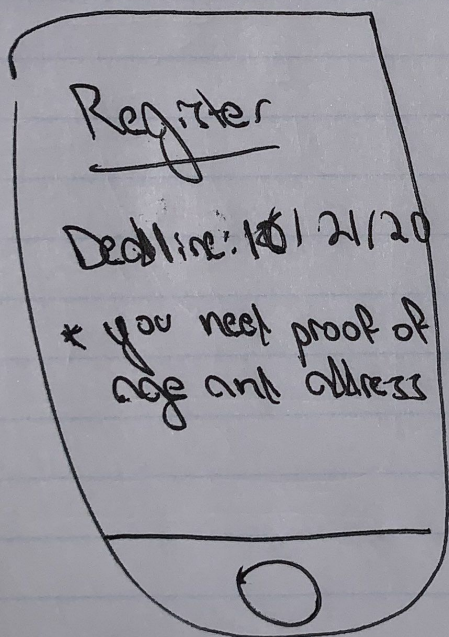 Register
Deadline: 10/21/20
* you need proof of
age and address